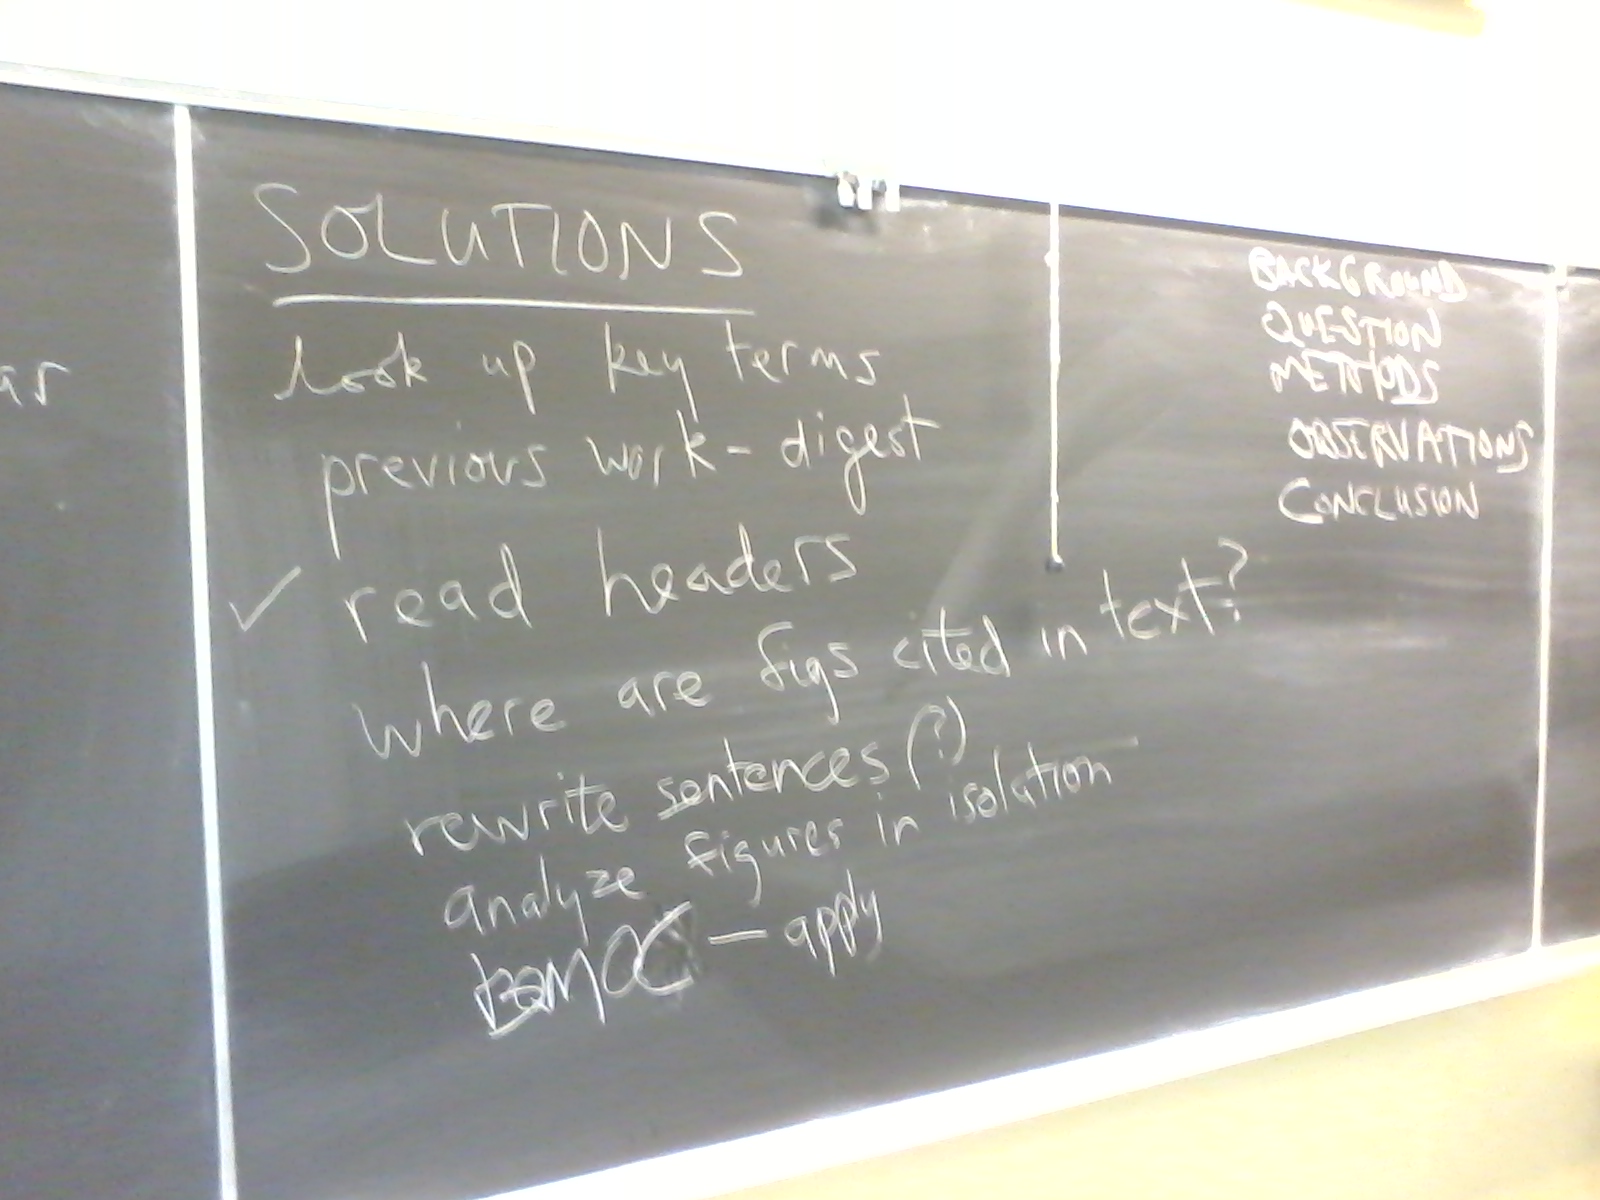 ar
SOLUTIONS
look up key terms
previous work - digest
✓ read headers
where are figs cited in text?
rewrite sentences (?)
analyze figures in isolation
BQMOC — apply
BACKGROUND
QUESTION
METHODS
OBSERVATIONS
CONCLUSION